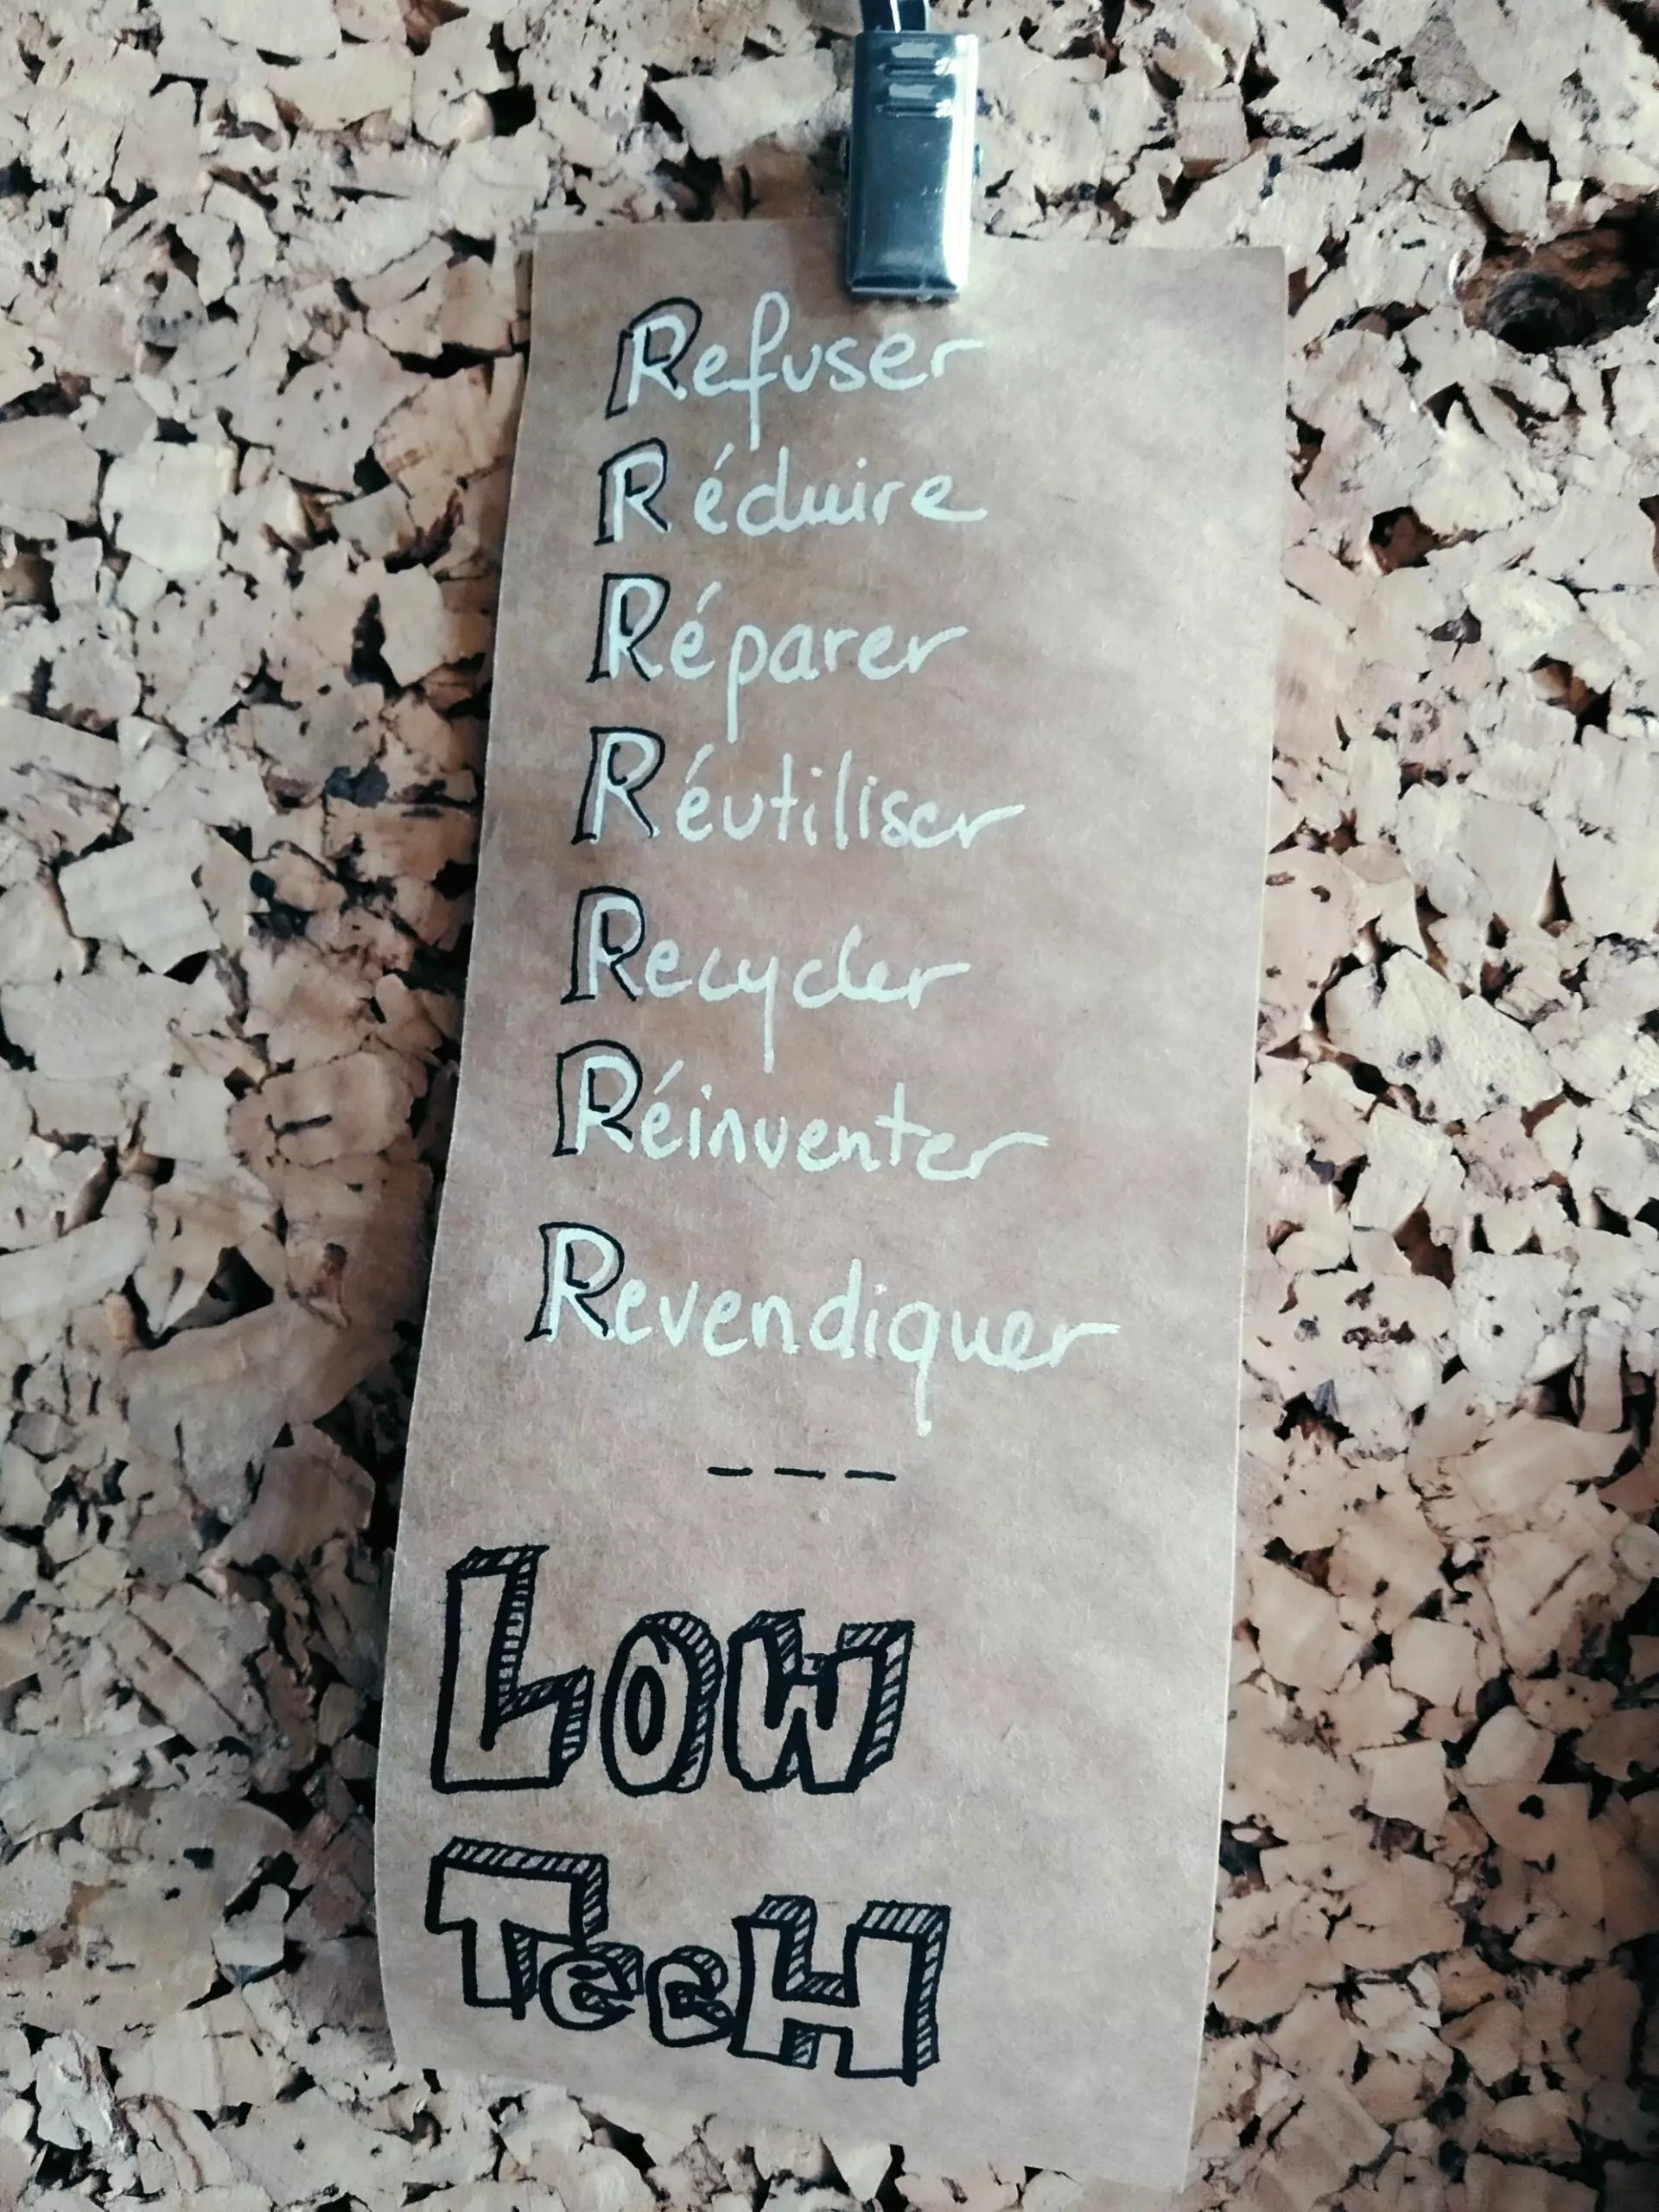 Refuser
Réduire
Réparer
Réutiliser
Recycler
Réinventer
Revendiquer
---
Low
TecH